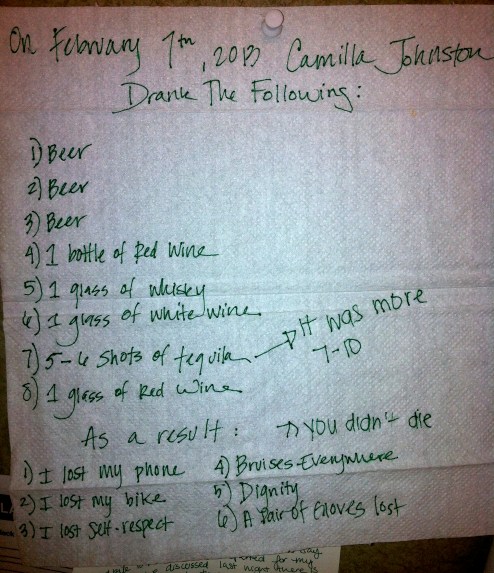 On February 7th, 2013 Camilla Johnston
Drank The Following:
1) Beer
2) Beer
3) Beer
4) 1 bottle of Red Wine
5) 1 glass of whiskey
6) 1 glass of white wine
7) 5-6 Shots of tequila
It was more
7-10
8) 1 glass of Red Wine
As a result:
you didn't die
1) I lost my phone
2) I lost my bike
3) I lost self-respect
4) Bruises-Everywhere
5) Dignity
6) A Pair of Gloves lost
discussed last night there's